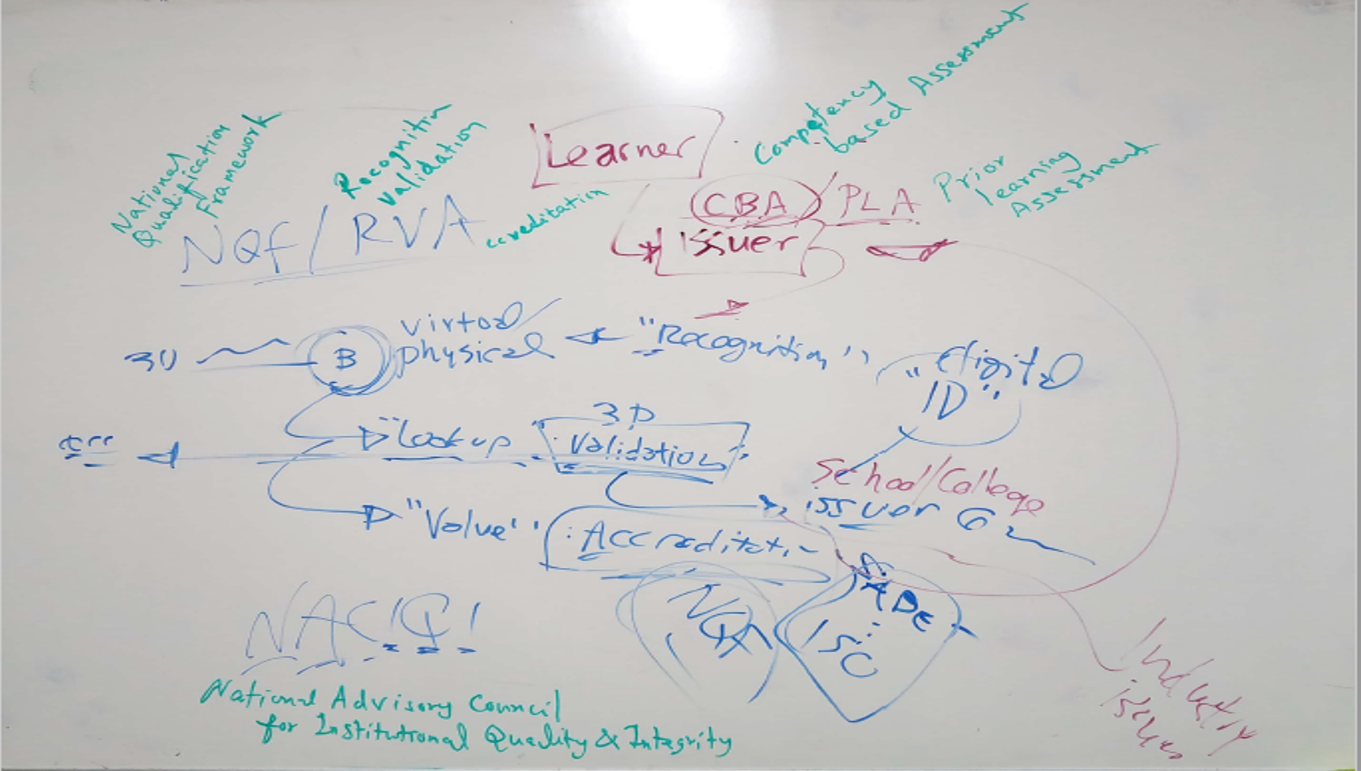 National
Qualification
Framework
Recognitin
Validation
ccreditation
NQf/RVA
Learner
Competency
based Assessment
CBA/PLA
Prior
learning
Assessment
issuer
30
B
virtual/
physical
"Recognition"
"Digital
ID"
"Lookup
3P
Validation
School/College
issuer
"Value"
Accreditatin
NQA
ADE
ISC
Industry
NACIQI
National Advisory Council
for Institutional Quality & Integrity